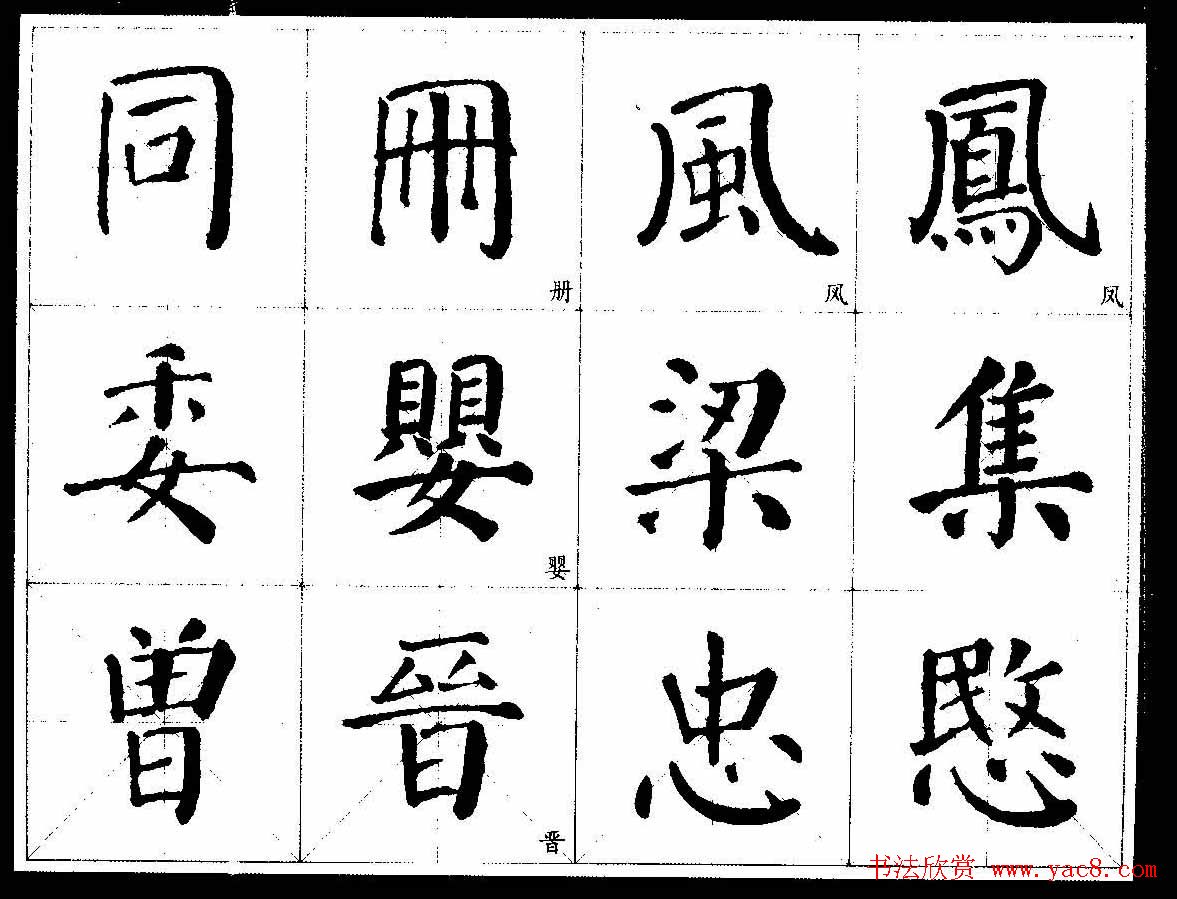 同 冊 風 鳳
册 风 凤
委 嬰 梁 集
婴
曾 晉 忠 愍
晋
书法欣赏 www.yac8.com